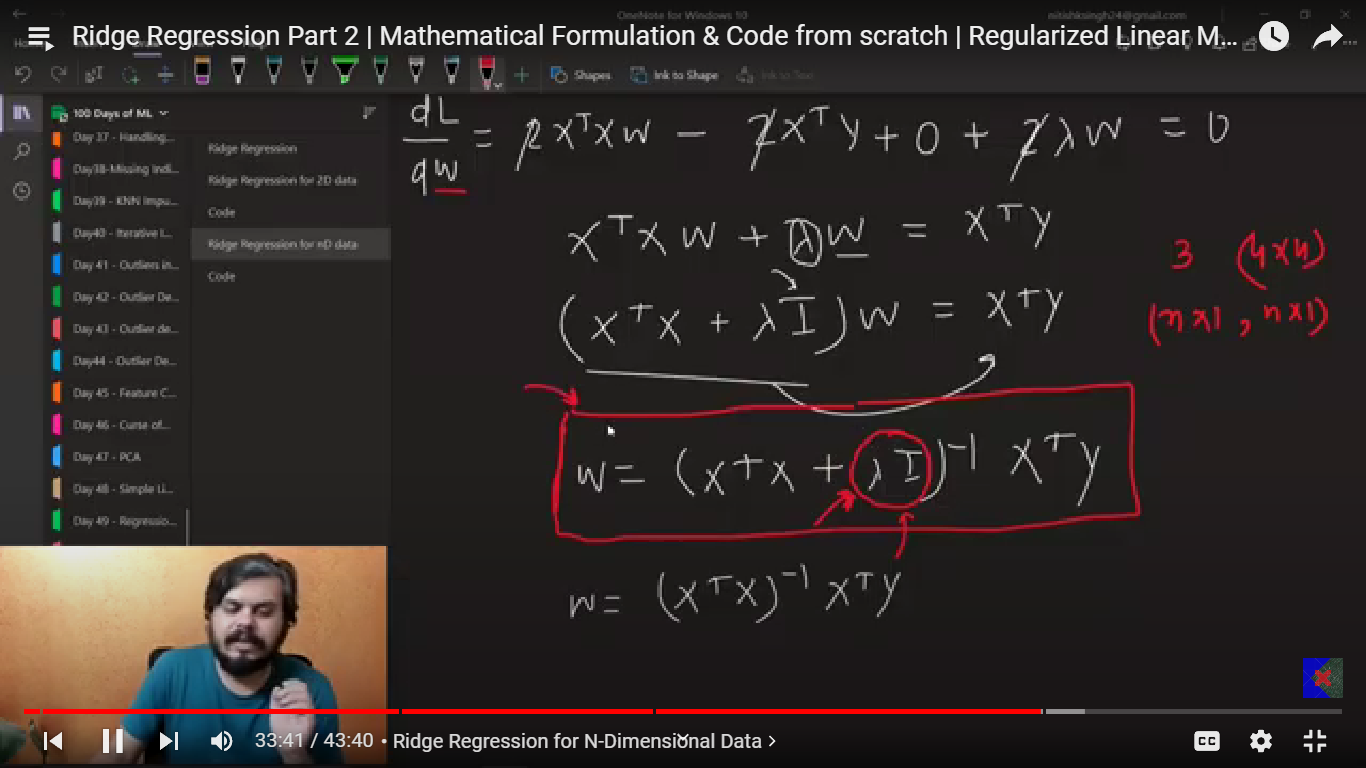 OneNote for Windows 10
nitishksingh24@gmail.com
Ridge Regression Part 2 | Mathematical Formulation & Code from scratch | Regularized Linear M...
Shapes
Ink to Shape
Ink to Text
100 Days of ML
Day 37 - Handling...
Day38-Missing Indi...
Day39 - KNN Impu...
Day40 - Iterative I...
Day 41 - Outliers in...
Day 42 - Outlier De...
Day 43 - Outlier de...
Day44 - Outlier De...
Day 45 - Feature C...
Day 46 - Curse of...
Day 47 - PCA
Day 48 - Simple Li...
Day 49 - Regressio...
Ridge Regression
Ridge Regression for 2D data
Code
Ridge Regression for nD data
Code
dL/dW = 2XᵀXW - 2XᵀY + 0 + 2λW = 0
XᵀXW + λW = XᵀY
(XᵀX + λI)W = XᵀY
3 (4×4)
(n×1, n×1)
W = (XᵀX + λI)⁻¹ XᵀY
W = (XᵀX)⁻¹ XᵀY
33:41 / 43:40 • Ridge Regression for N-Dimensional Data >
CC